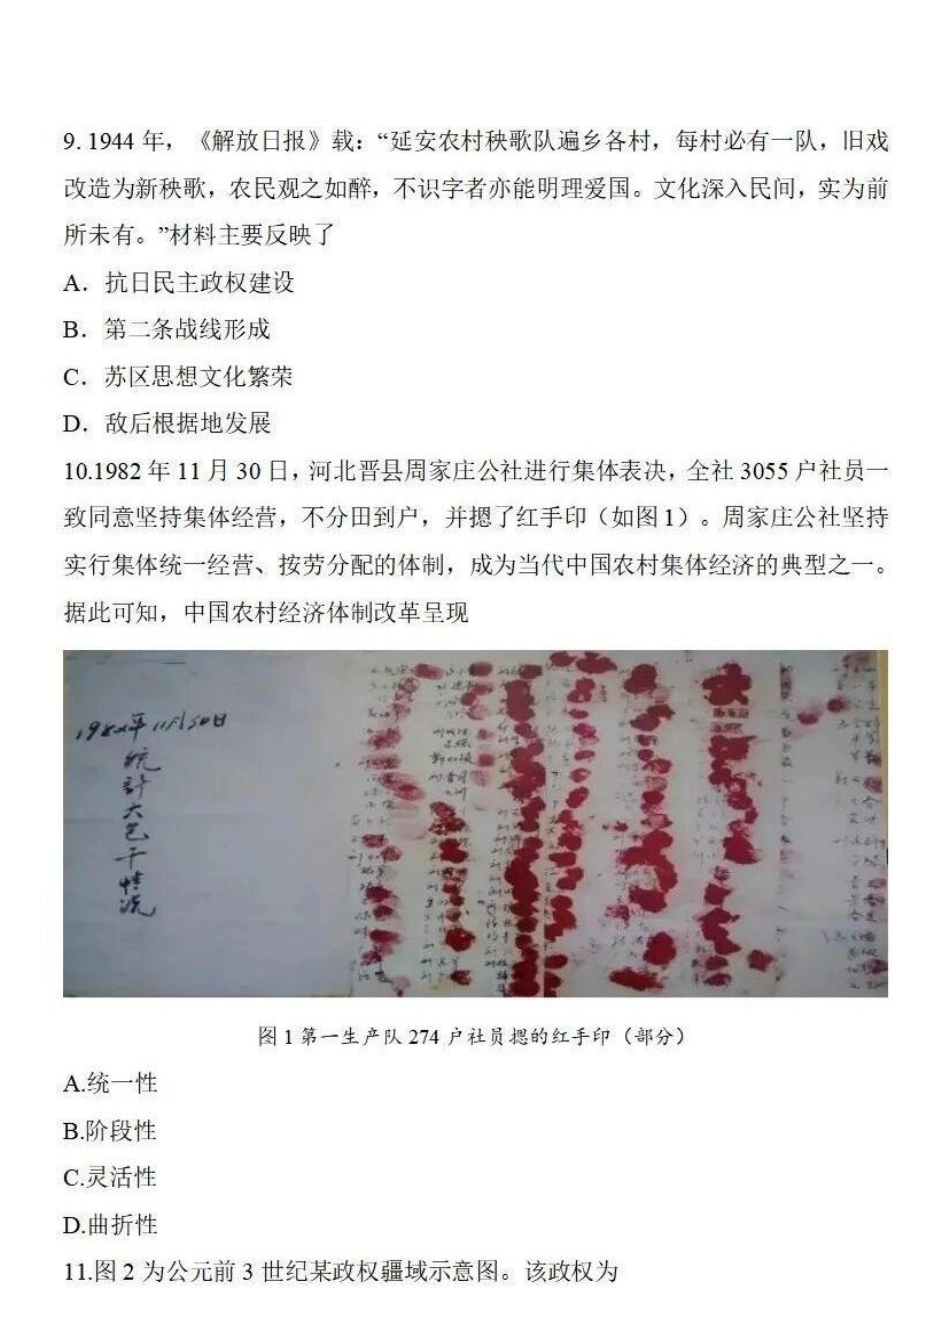 9. 1944 年，《解放日报》载：“延安农村秧歌队遍乡各村，每村必有一队，旧戏
改造为新秧歌，农民观之如醉，不识字者亦能明理爱国。文化深入民间，实为前
所未有。”材料主要反映了
A．抗日民主政权建设
B．第二条战线形成
C．苏区思想文化繁荣
D．敌后根据地发展
10.1982 年 11 月 30 日，河北晋县周家庄公社进行集体表决，全社 3055 户社员一
致同意坚持集体经营，不分田到户，并摁了红手印（如图 1）。周家庄公社坚持
实行集体统一经营、按劳分配的体制，成为当代中国农村集体经济的典型之一。
据此可知，中国农村经济体制改革呈现
1982年11月30日
统計大包干情况
图 1 第一生产队 274 户社员摁的红手印（部分）
A.统一性
B.阶段性
C.灵活性
D.曲折性
11.图 2 为公元前 3 世纪某政权疆域示意图。该政权为